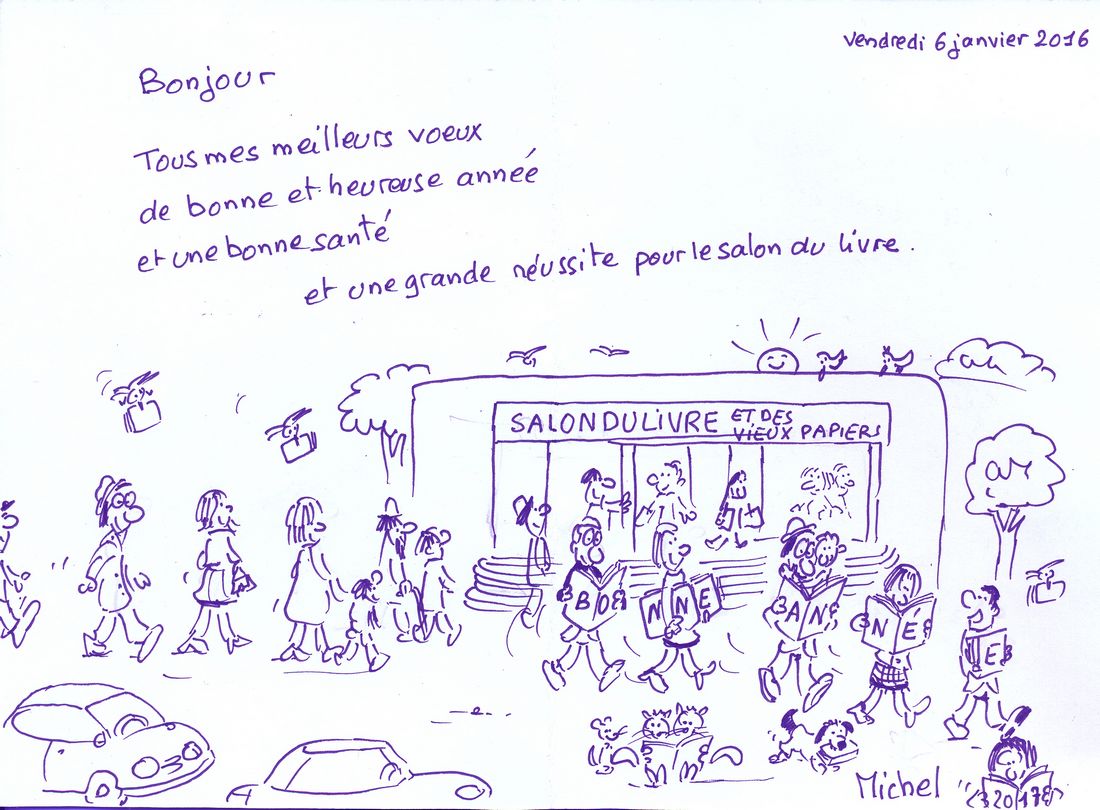 Vendredi 6 janvier 2016
Bonjour
Tous mes meilleurs voeux
de bonne et heureuse année
et une bonne santé
et une grande réussite pour le salon du livre.
SALON DU LIVRE ET DES
VIEUX PAPIERS
BO N NE AN NÉ E
Michel
2017